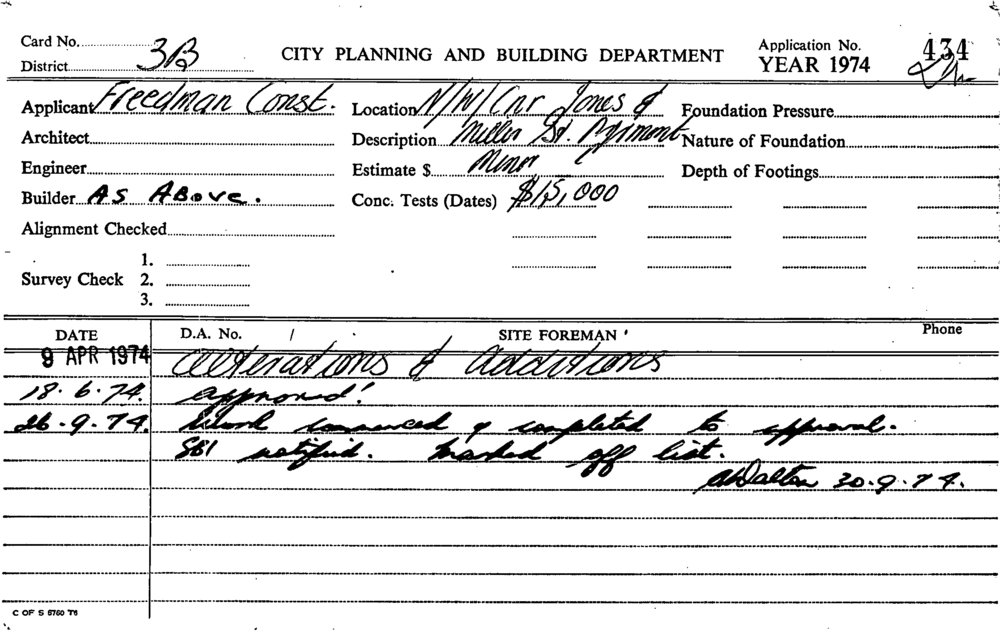 Card No. CITY PLANNING AND BUILDING DEPARTMENT Application No. 434
District 3B YEAR 1974
Applicant Freedman Const. Location N/W/Cnr Jones & Foundation Pressure
Architect Description Miller St. Pyrmont Nature of Foundation
Engineer Estimate $ Minor Depth of Footings
Builder As Above. Conc. Tests (Dates) $15,000
Alignment Checked
1.
Survey Check 2.
3.
DATE D.A. No. / SITE FOREMAN Phone
9 APR 1974 Alterations & Additions
18.6.74. approved!
26.9.74. Work commenced & completed to approval.
SBI notified. Marked off list.
Dalton 30.9.74.
C OF S 5760 T6